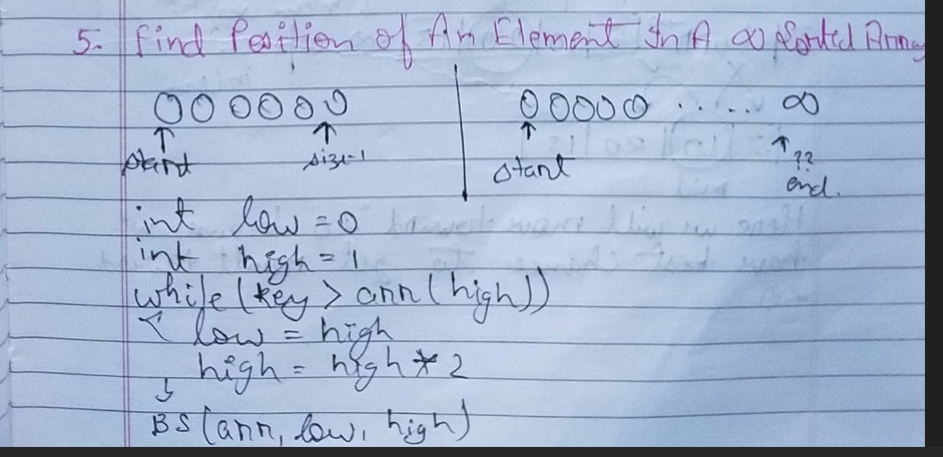 5. Find Position of An Element In A ∞ Sorted Array
0 0 0 0 0 0
↑ ↑
start size-1
0 0 0 0 0 ...... ∞
↑ ↑ ??
start end.
int low = 0
int high = 1
while (key > arr (high))
{ low = high
high = high * 2
}
BS (arr, low, high)